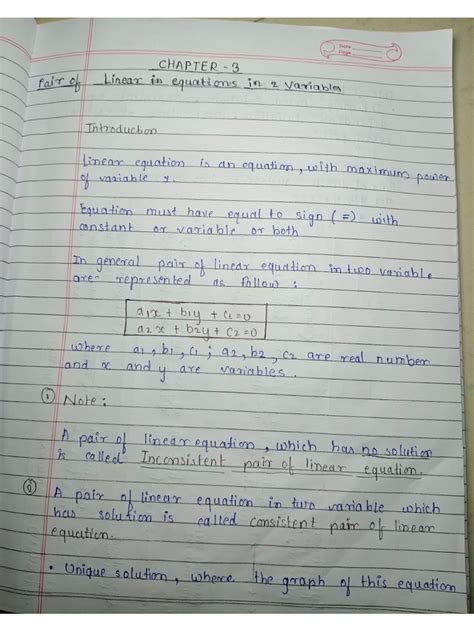 Date
Page
CHAPTER - 3
Pair of Linear in equations in 2 variables
Introduction
Linear equation is an equation, with maximum power
of variable 1.
Equation must have equal to sign (=) with
constant or variable or both
In general pair of linear equation in two variable
are represented as follow :
a₁x + b₁y + c₁=0
a₂x + b₂y + c₂=0
where a₁, b₁, c₁ ; a₂, b₂, c₂ are real number
and x and y are variables.
① Note :
A pair of linear equation, which has no solution
is called Inconsistent pair of linear equation.
② A pair of linear equation in two variable which
has solution is called consistent pair of linear
equation.
• Unique solution, where the graph of this equation